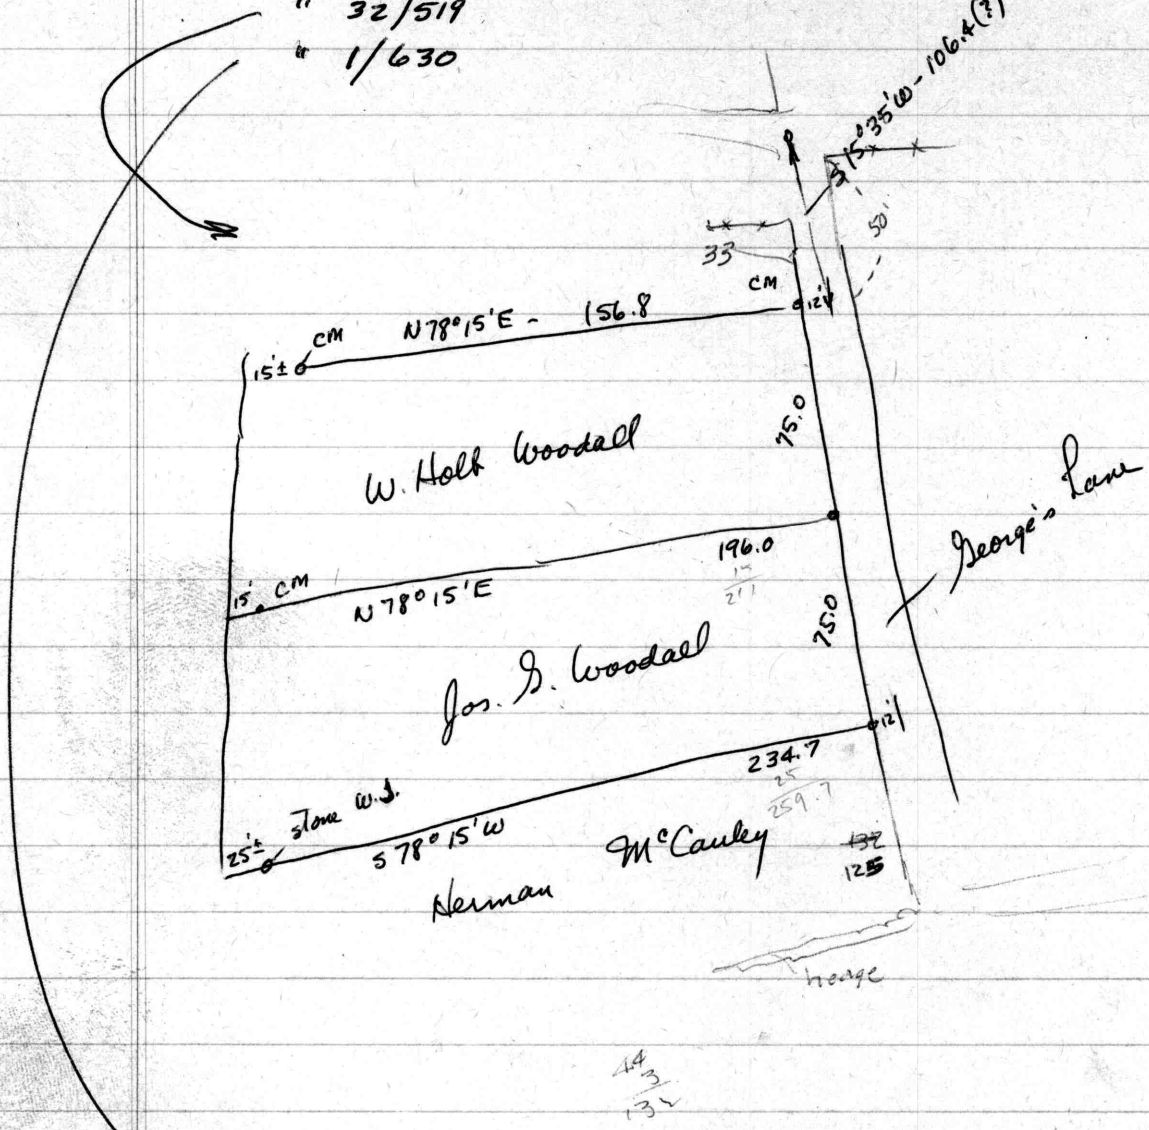 " 32/519
" 1/630
S 15° 35' W - 106.4 (?)
50'
33
CM
12'
CM
N 78° 15' E - 156.8
15'±
75.0
W. Holt Woodall
George's Lane
196.0
15
211
15' CM
N 78° 15' E
75.0
Jos. G. Woodall
12'
234.7
25
259.7
stone W.S.
25'±
S 78° 15' W
McCauley
132
125
Herman
hedge
44
3
132